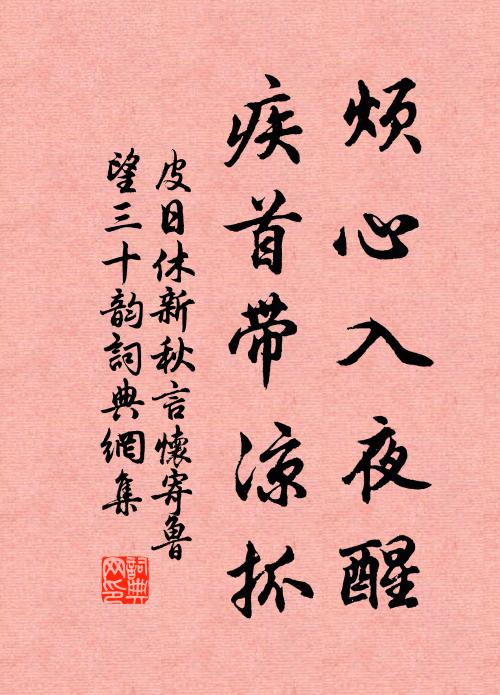 烦心入夜醒
疾首带凉抓
皮日休新秋言懷寄魯
望三十韵詞典網集
詞典
网印